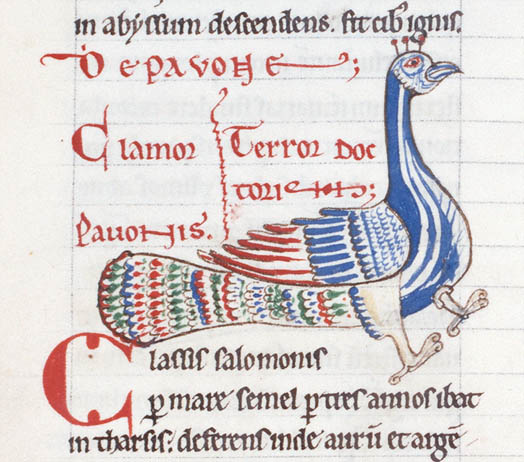 in abyssum descendens. fit cib' ignis.
DE PAVONE ;
Clamor
Pavonis.
Terror doc
toris ;
Classis salomonis
p mare semel p tres annos ibat
in tharsis; deferens inde aurū et argē